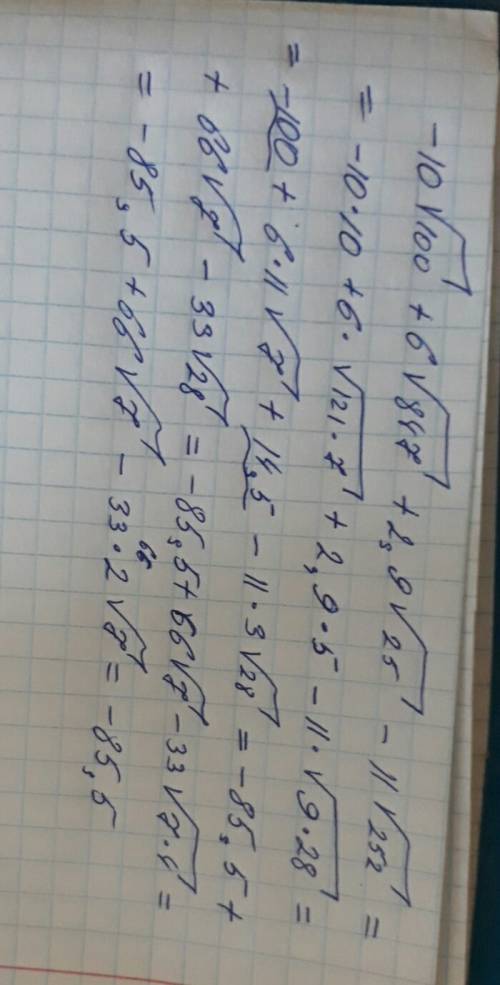 -10√100 + 6√847 + 2,9√25 - 11√252 =
= -10·10 + 6·√121·7 + 2,9·5 - 11·√9·28 =
= -100 + 6·11√7 + 14,5 - 11·3√28 = -85,5 +
+ 66√7 - 33√28 = -85,5 + 66√7 - 33√7·4 =
66
= -85,5 + 66√7 - 33·2√7 = -85,5